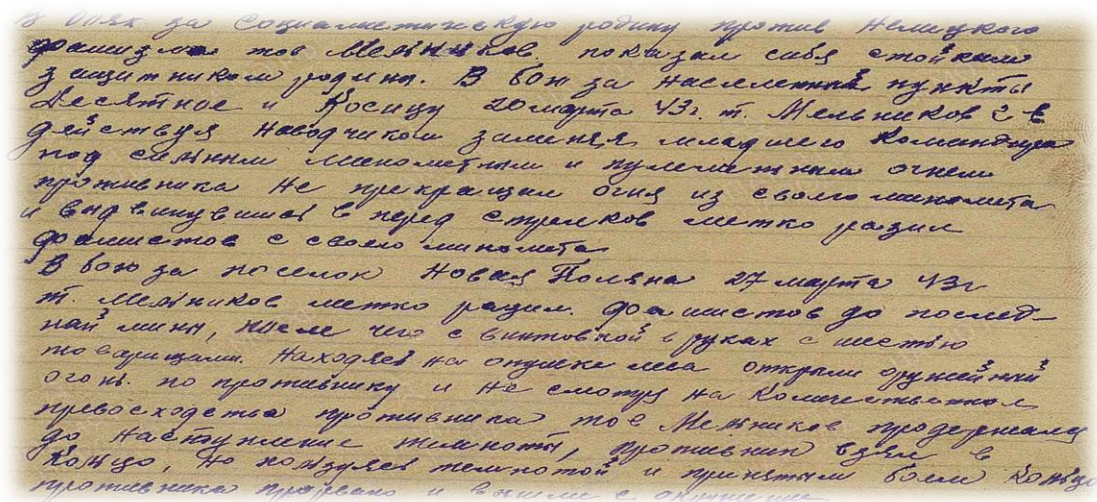 В боях за социалистическую родину против Немецкого
фашизма тов Мельников показал себя стойким
защитником родины. В бою за населенный пункты
Десятное и Косицу 20 марта 43г. т. Мельников в
действуя наводчиком заменяя младшего командира
под сильным минометным и пулеметным огнем
противника не прекращал огня из своего миномета
и выдвинувшись в перед стрелков метко разил
фашистов с своего миномета
В бою за поселок Новая Поляна 27 марта 43г
т. Мельников метко разил фашистов до послед-
ней мины, после чего с винтовкой в руках с шестью
товарищами. Находясь на опушке леса открыли оружейный
огонь по противнику и не смотря на количественное
превосходства противника тов Мельников продержался
до наступление темноты, противник взял в
кольцо, но пользуясь темнотой и принятым боем кольцо
противника прорвано и вышли с